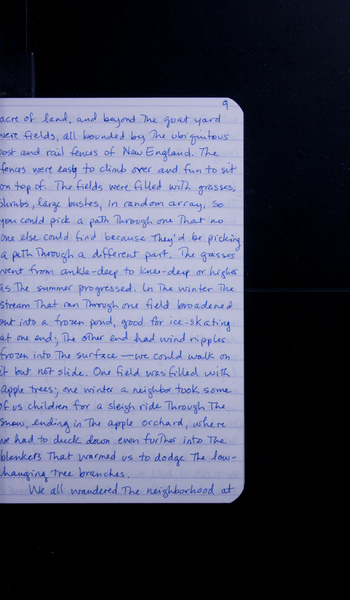 9
acre of land, and beyond the goat yard
were fields, all bounded by the ubiquitous
post and rail fences of New England. The
fences were easy to climb over and fun to sit
on top of. The fields were filled with grasses,
shrubs, large bushes, in random array, so
you could pick a path through one that no
one else could find because they'd be picking
a path through a different part. The grasses
went from ankle-deep to knee-deep or higher
as the summer progressed. In the winter the
stream that ran through one field broadened
out into a frozen pond, good for ice-skating
at one end; the other end had wind ripples
frozen into the surface — we could walk on
it but not slide. One field was filled with
apple trees; one winter a neighbor took some
of us children for a sleigh ride through the
snow, ending in the apple orchard, where
we had to duck down even further into the
blankets that warmed us to dodge the low-
hanging tree branches.
We all wandered the neighborhood at